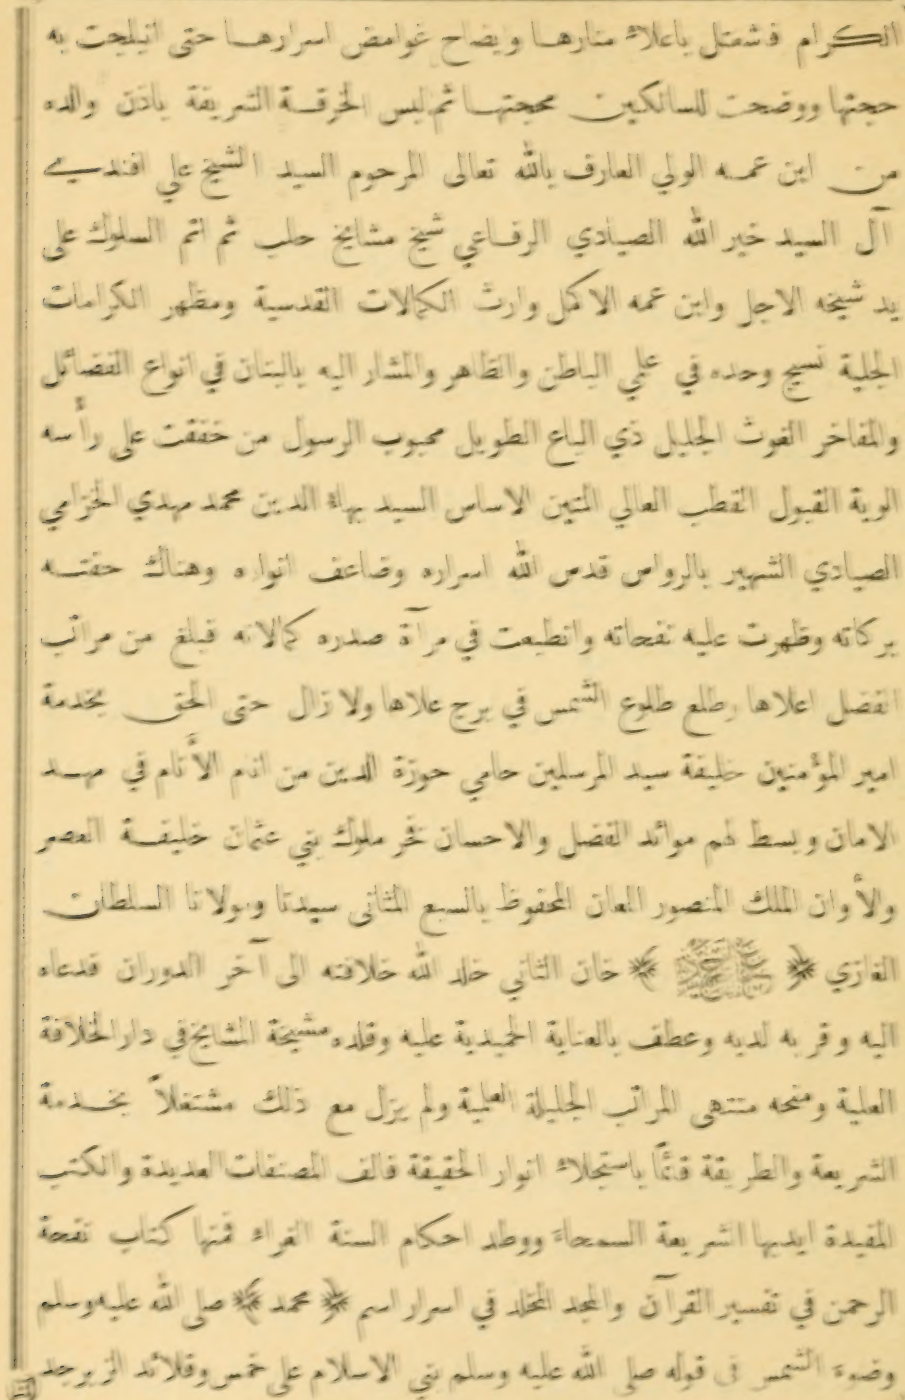 الكرام فاشتغل باعلاء منارها وبضاح غوامض اسرارها حتى انبلجت به
حجتها ووضحت للسالكين محجتها ثم لبس الخرقة الشريفة باذن والده
من ابن عمه الولي العارف بالله تعالى المرحوم السيد الشيخ علي افندي
آل السيد خير الله الصيادي الرفاعي شيخ مشايخ حلب ثم اتم السلوك على
يد شيخه الاجل وابن عمه الاكمل وارث الكمالات القدسية ومظهر الكرامات
الجلية نسيج وحده في علمي الباطن والظاهر والمشار اليه بالبنان في انواع الفضائل
والمفاخر الغوث الجليل ذي الباع الطويل محبوب الرسول من خفقت على رأسه
الوية القبول القطب العالي المتين الاساس السيد بهاء الدين محمد مهدي الخزامي
الصيادي الشهير بالرواس قدس الله اسراره وضاعف انواره وهناك حفته
بركاته وظهرت عليه نفحاته وانطبعت في مرآة صدره كمالاته فبلغ من مراتب
الفضل اعلاها وطلع طلوع الشمس في برج علاها ولا زال حتى التحق بخدمة
امير المؤمنين خليفة سيد المرسلين حامي حوزة الدين من انام الأنام في مهد
الامان وبسط لهم موائد الفضل والاحسان فخر ملوك بني عثمان خليفة العصر
والأوان الملك المنصور المعان المحفوظ بالسبع المثاني سيدنا ومولانا السلطان
الغازي ﴿ عبد الحميد ﴾ خان الثاني خلد الله خلافته الى آخر الدوران فدعاه
اليه وقربه لديه وعطف بالعناية الحميدية عليه وقلده مشيخة المشايخ في دار الخلافة
العلية ومنحه منتهى المراتب الجليلة العلمية ولم يزل مع ذلك مشتغلاً بخدمة
الشريعة والطريقة قائمًا باستجلاء انوار الحقيقة فالف المصنفات العديدة والكتب
المفيدة ايد بها الشريعة السمحاء ووطد احكام السنة الغراء فمنها كتاب نفحة
الرحمن في تفسير القرآن والمجد المخلد في اسرار اسم ﴿ محمد ﴾ صلى الله عليه وسلم
وضوء الشمس في قوله صلى الله عليه وسلم بني الاسلام على خمس وقلائد الزبرجد